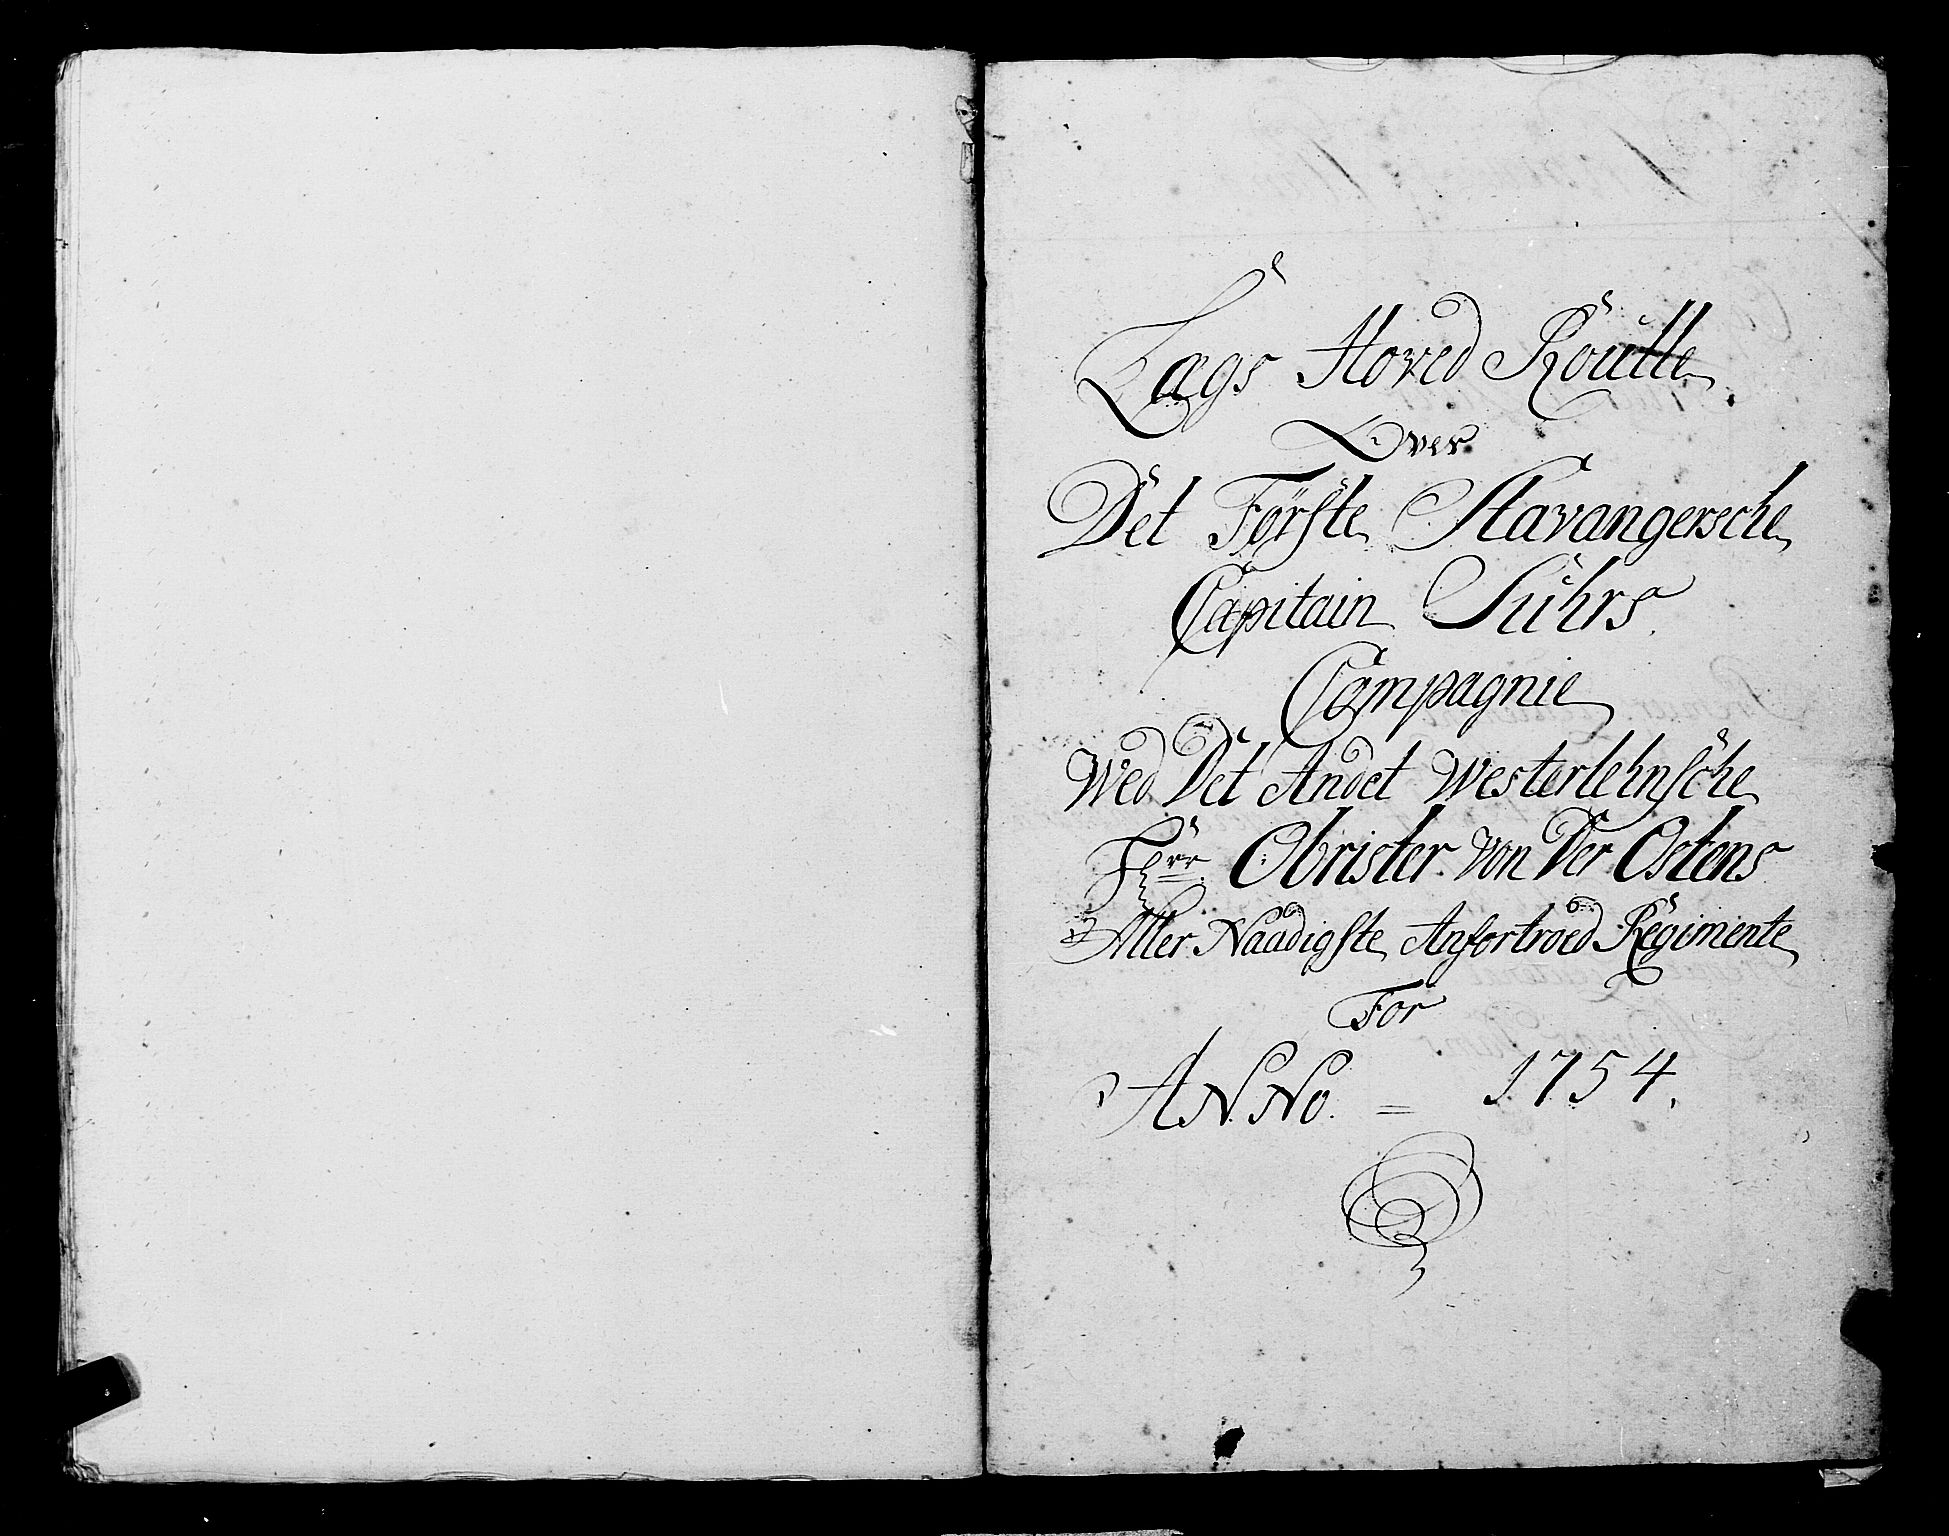 Lægs Hoved Roulle
Over
Det Første Stavangersche
Capitain Suhrs.
Compagnie
Wed Det Andet Westerlehnsche
Hrr Obrister von Der Ostens
Aller Naadigste Anfortroed Regimente
For
ANNo. = 1754.